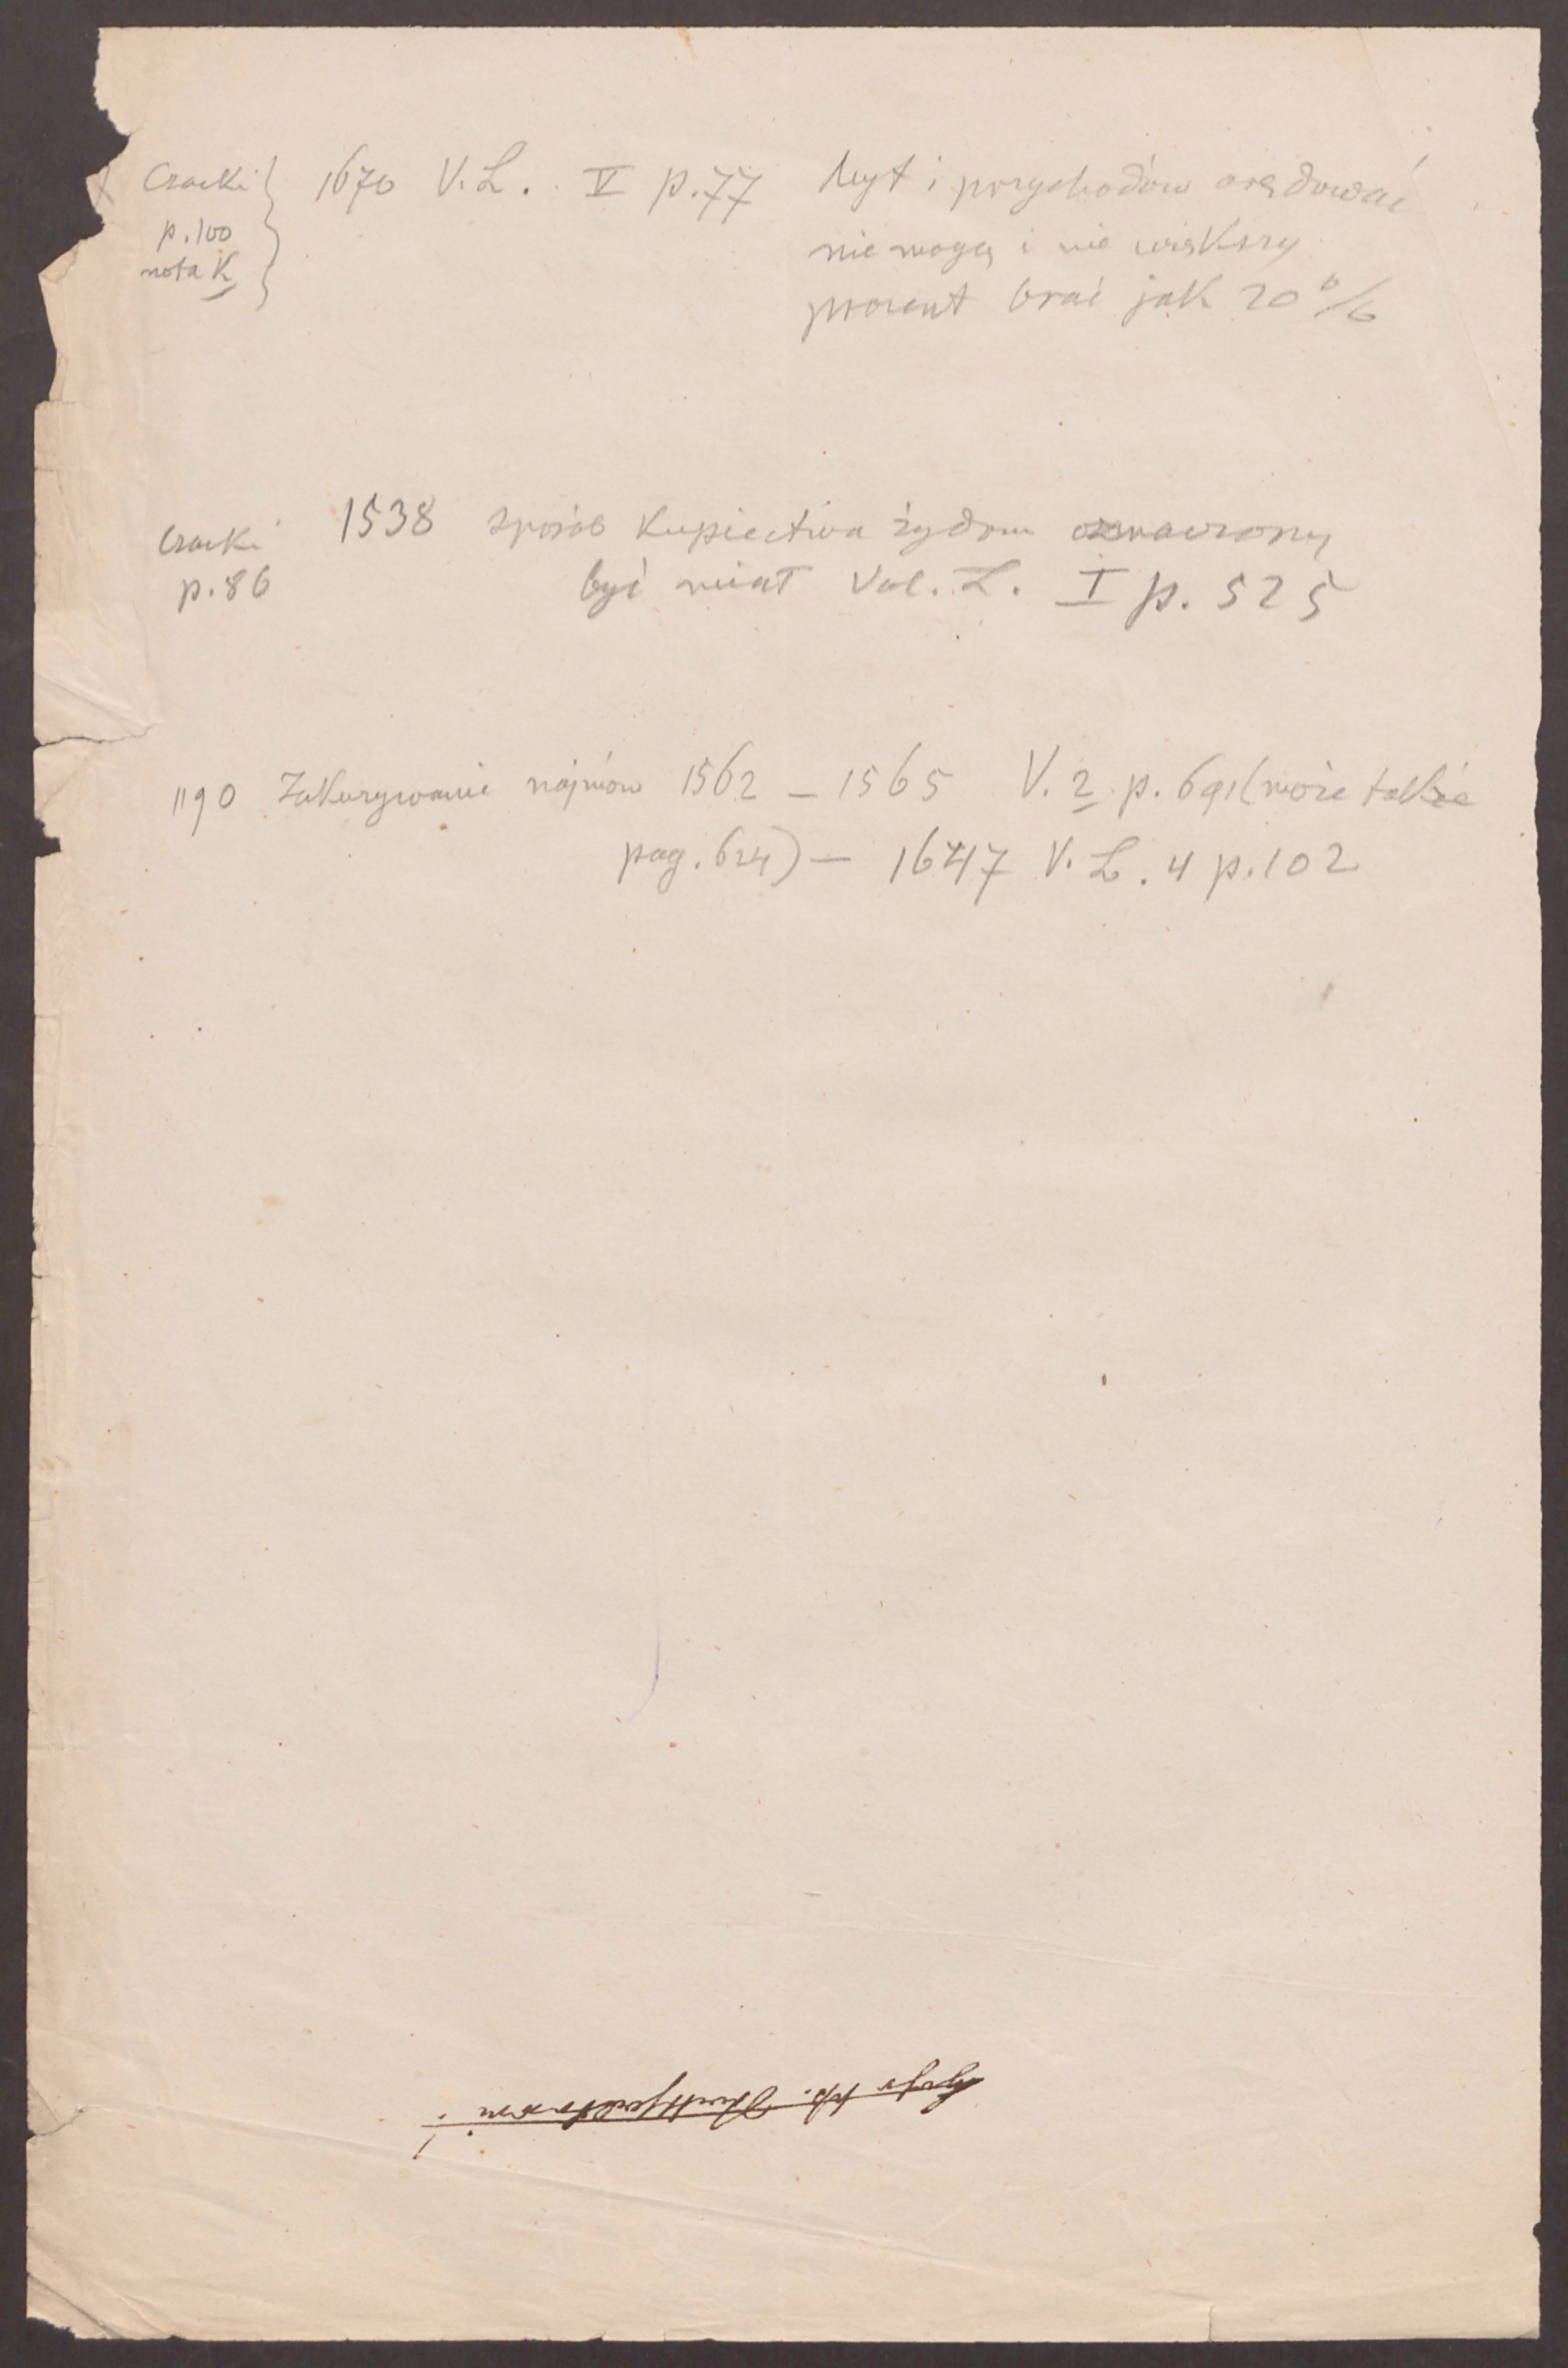 Czacki } 1670 V. L. V p. 77 Myt i przychodów arędować
p. 100
nota K
nie mogą i nie większy
procent brać jak 20 %
Czacki 1538 sposób Kupiectwa żydom oznaczony
p. 86 być miał Vol. L. I p. 525
1190 Zakazywanie najmów 1562 – 1565 V. 2 p. 691 (może także
pag. 624) – 1647 V. L. 4 p. 102